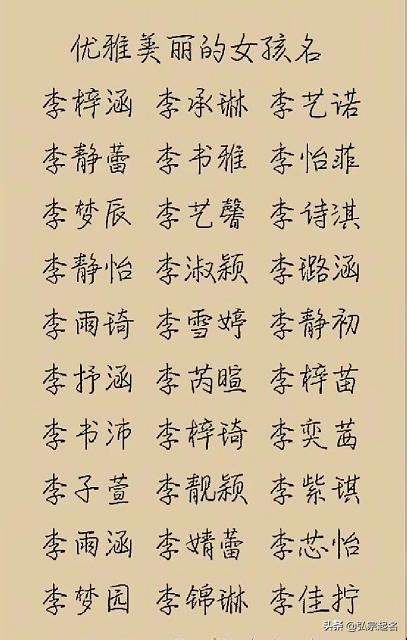 优雅美丽的女孩名
李梓涵 李承琳 李艺诺
李静蕾 李书雅 李怡菲
李梦辰 李艺馨 李诗淇
李静怡 李淑颖 李璐涵
李雨琦 李雪婷 李静初
李抒涵 李芮暄 李梓苗
李书沛 李梓琦 李奕茜
李子萱 李靓颖 李紫琪
李雨涵 李婧蕾 李芯怡
李梦园 李锦琳 李佳拧
头条 @弘宗起名